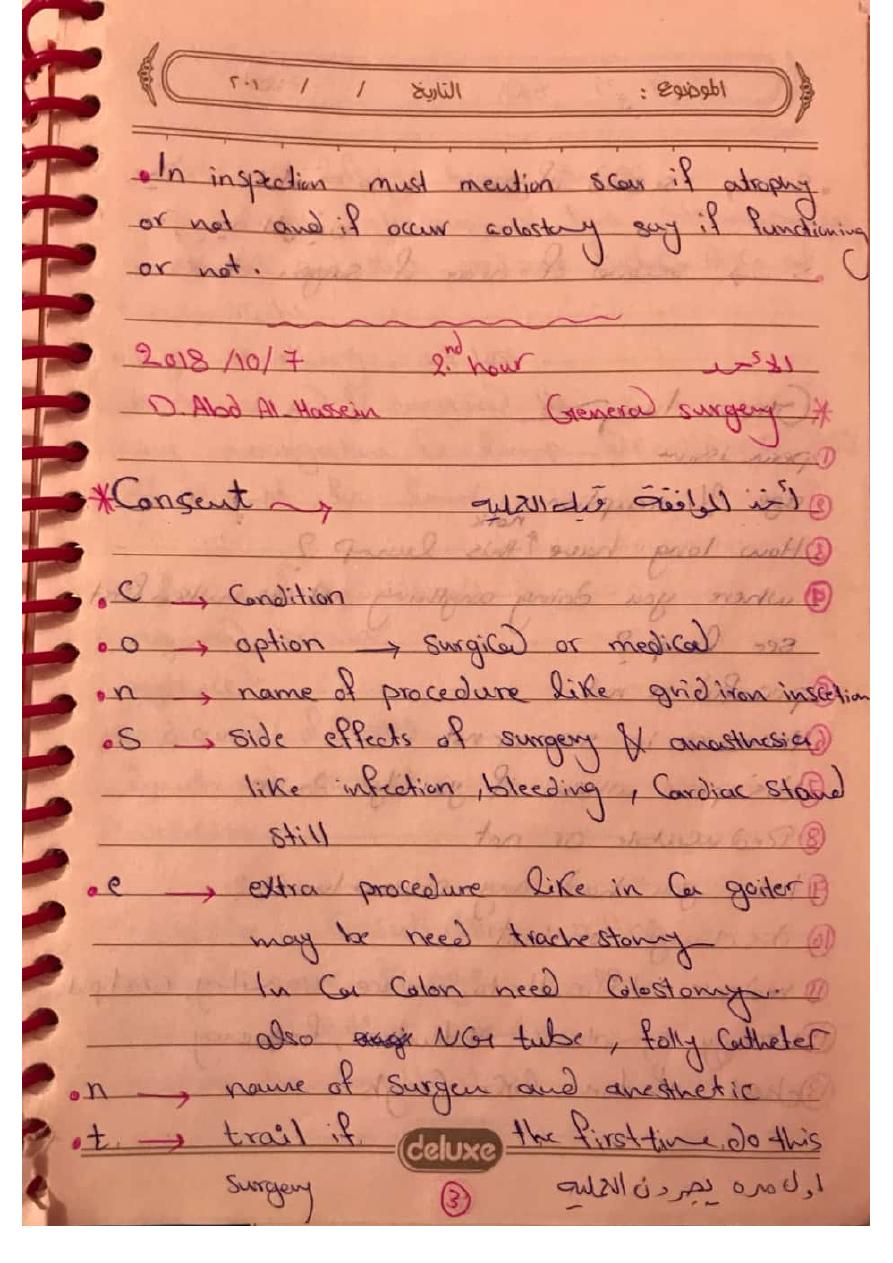 الموضوع : التاريخ / / ٢٠١
• In inspection must mention scar if atrophy
or not and if occur colostomy say if functioning
or not.
2018/10/7 2nd hour الأحد
D. Abd Al-Hasein General surgery *
* Consent → أخذ الموافقة قبل العملية
• C → Condition
• o → option → surgical or medical
• n → name of procedure like grid iron inscetion
• S → side effects of surgery & anasthesia
like infection, bleeding, Cardiac stand
still
• e → extra procedure like in Ca goiter
may be need trachestomy
In Ca Colon need Colostomy.
also NG tube, folly Catheter
• n → name of surgen and anesthetic
• t → trail if the first time do this
deluxe
surgery اول مره يجرون العمليه
3